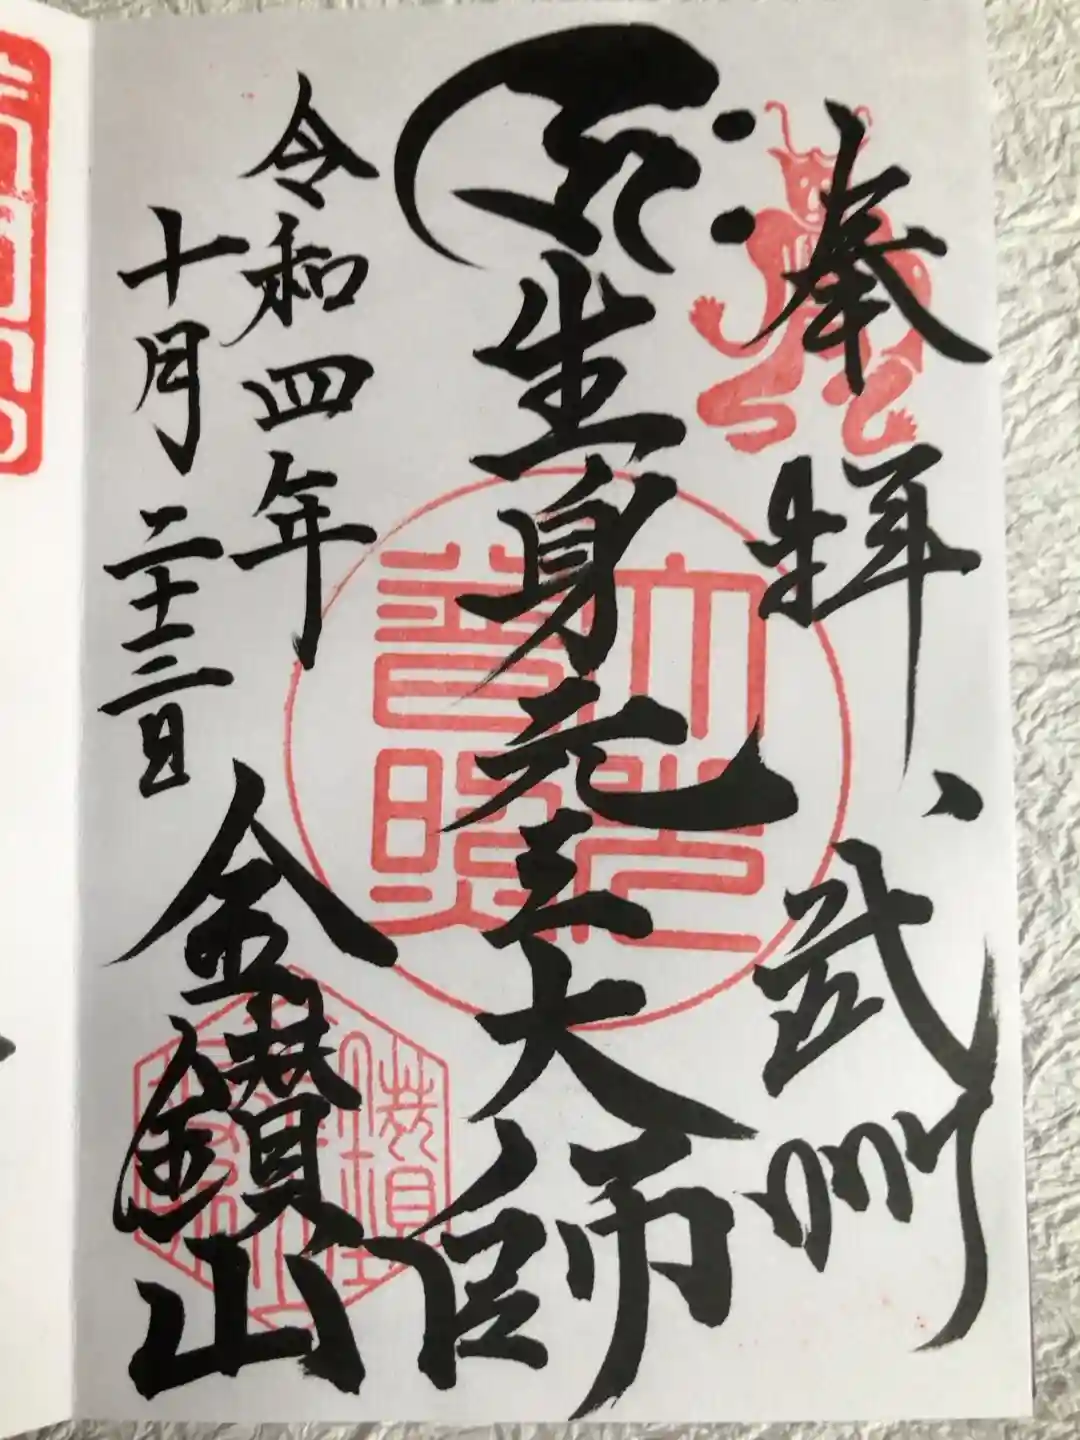 奉拝、武州
生身元三大師
令和四年
十月二十三日
金鑚山